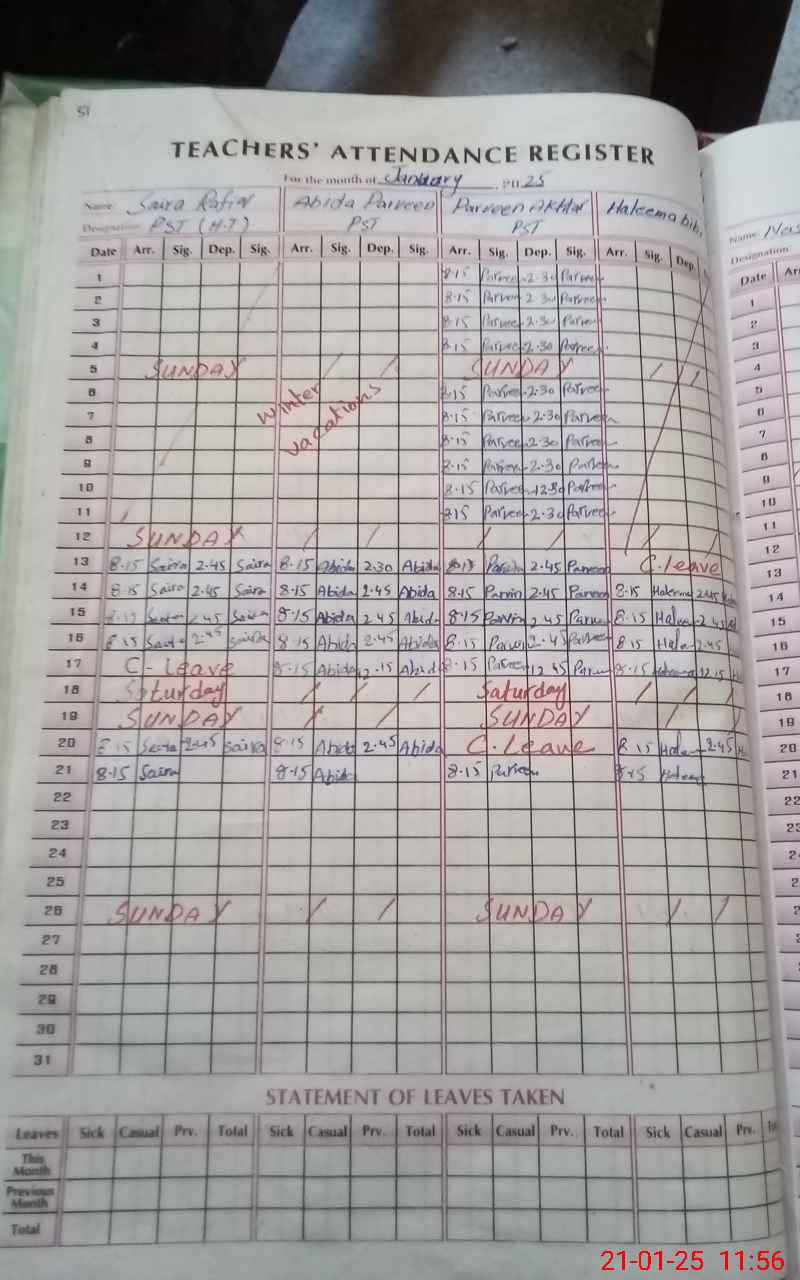 51
TEACHERS' ATTENDANCE REGISTER
For the month of January 2025
Name Saira Rafiq Abida Parveen Parveen Akhtar Haleema bibi
Designation PST (H.T) PST PST
Date Arr. Sig. Dep. Sig. Arr. Sig. Dep. Sig. Arr. Sig. Dep. Sig. Arr. Sig. Dep.
1 8.15 Parveen 2.30 Parveen
2 8.15 Parveen 2.30 Parveen
3 8.15 Parveen 2.30 Parveen
4 8.15 Parveen 2.30 Parveen
5 SUNDAY / / SUNDAY / /
6 8.15 Parveen 2.30 Parveen
winter
7 8.15 Parveen 2.30 Parveen
vacations
8 8.15 Parveen 2.30 Parveen
9 8.15 Parveen 2.30 Parveen
10 8.15 Parveen 2.30 Parveen
11 8.15 Parveen 2.30 Parveen
12 SUNDAY / / / / / /
13 8.15 Saira 2.45 Saira 8.15 Abida 2.30 Abida 8.15 Parveen 2.45 Parveen C.leave
14 8.15 Saira 2.45 Saira 8.15 Abida 2.45 Abida 8.15 Parvin 2.45 Parveen 8.15 Haleema 2.45
15 8.15 Saira 2.45 Saira 8.15 Abida 2.45 Abida 8.15 Parvin 2.45 Parveen 8.15 Haleema 2.45
16 8.15 Saira 2.45 Saira 8.15 Abida 2.45 Abida 8.15 Parvin 2.45 Parveen 8.15 Hale 2.45
17 C-leave 8.15 Abida 12.15 Abida 8.15 Parveen 12.45 Parveen 8.15 Haleema 12.15
18 Saturday / / / Saturday / /
19 SUNDAY / / SUNDAY / /
20 8.15 Saira 2.45 Saira 8.15 Abida 2.45 Abida C.Leave 8.15 Haleem 2.45
21 8.15 Saira 8.15 Abida 8.15 Parveen 8.15 Haleema
22
23
24
25
26 SUNDAY / / SUNDAY / /
27
28
29
30
31
STATEMENT OF LEAVES TAKEN
Leaves Sick Casual Prv. Total Sick Casual Prv. Total Sick Casual Prv. Total Sick Casual Prv.
This Month
Previous Month
Total
Name
Designation
Date
1
2
3
4
5
6
7
8
9
10
11
12
13
14
15
16
17
18
19
20
21
22
23
21-01-25 11:56